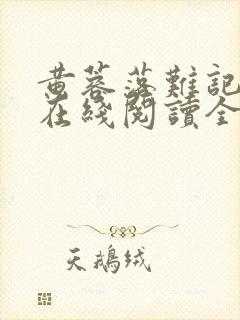 黄蓉落難記
在綫閱讀全
天鵝绒